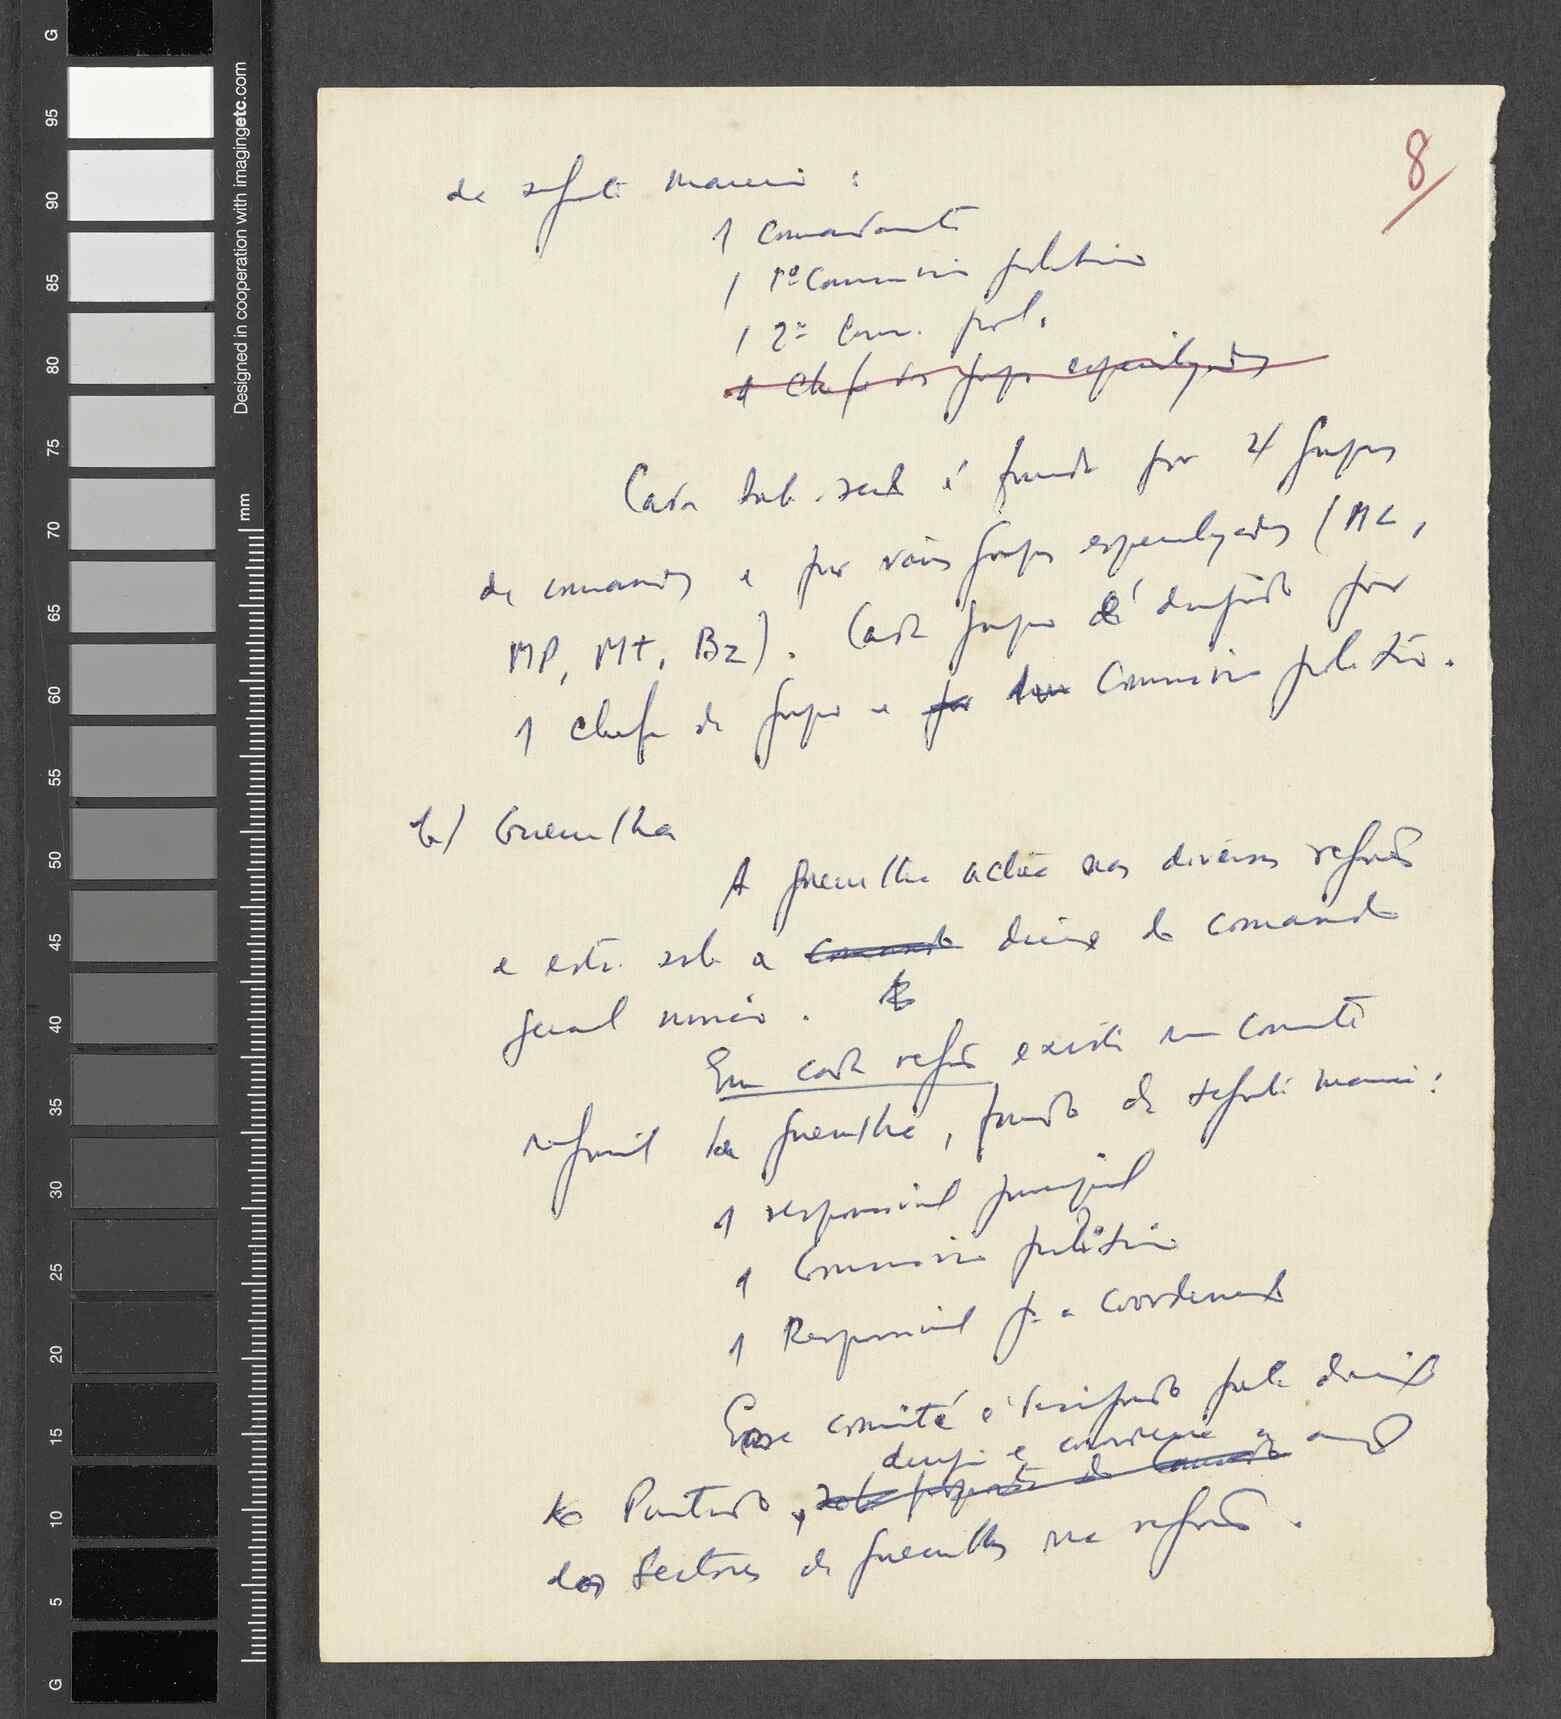 8
de seguinte maneira :
1 Comandante
1 1º Comissário político
1 2º Com. pol.
1 Chefe dos grupos especializados
Cada sub-sect é formado por 4 grupos
de comandos e por vários grupos especializados (MC,
MP, Mt, Bz). Cada grupo é dirigido por
1 chefe de grupo e por um Comissário político.
b) Guerrilha
A guerrilha actua nas diversas regiões
e está sob a comando direc do comando
geral único.
Em cada região existe um Comité
regional da guerrilha, formado da seguinte maneira:
1 responsável principal
1 Comissário político
1 Responsável p. a coordenação
Esse comité é designado pela direcção
do Partido, sob proposta do Comando
dirige e coordena a acção
dos sectores de guerrilha na região.
G
95
90
85
80
75
70
65
60
55
50
45
40
35
30
25
20
15
10
5
G
mm
Designed in cooperation with imagingetc.com